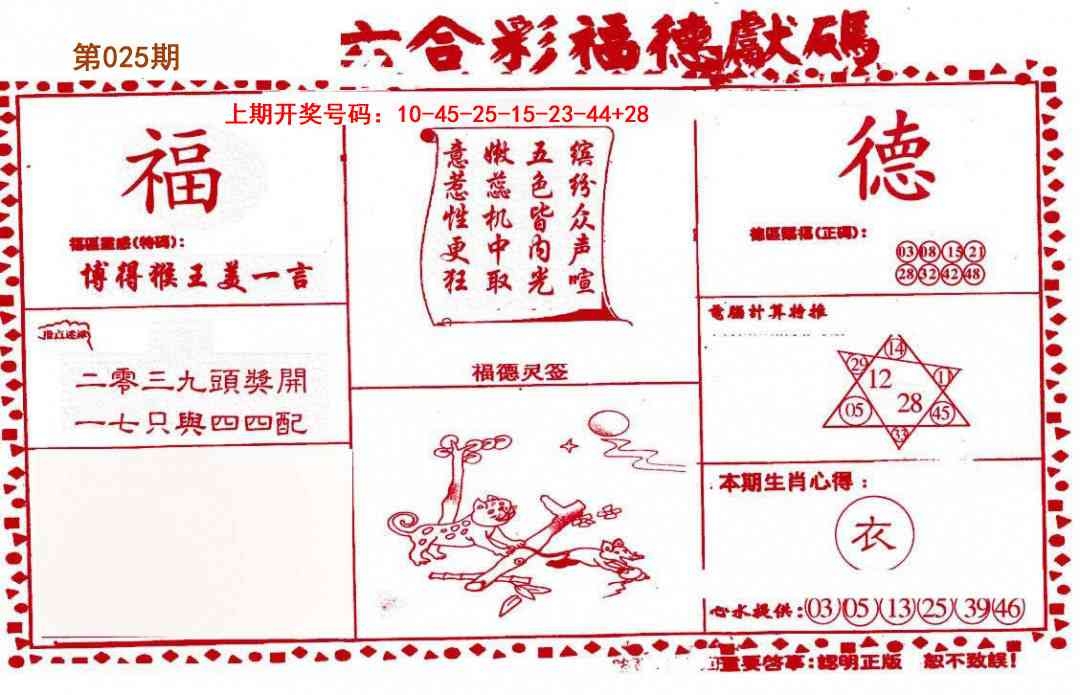 六合彩福德獻碼
第025期
上期开奖号码：10-45-25-15-23-44+28
福
福區靈感(特碼)：
博得猴王美一言
二零三九頭獎開
一七只與四四配
缤纷众声喧
五色皆内光
嫩蕊机中取
意惹性更狂
福德灵签
德
德區賜福(正碼)：
03 08 15 21
28 32 42 48
電腦計算特推
14
29
12
1
05
28
45
33
本期生肖心得：
衣
心水提供：03 05 13 25 39 46
重要啓事：認明正版 恕不致誤！